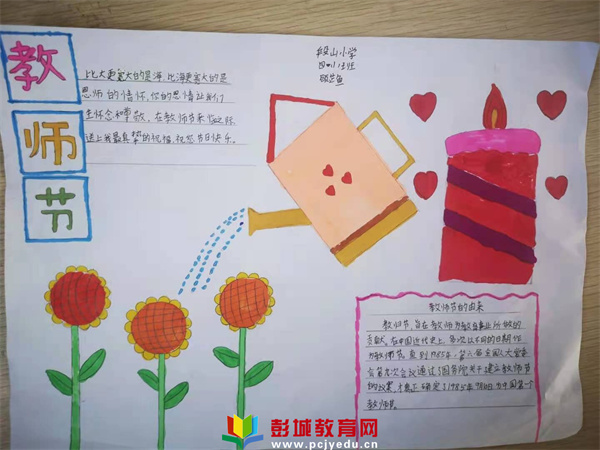 教
师
节
比大更宽大的是海,比海更宽大的是
恩师的情怀,你的恩情让我们
生怀念和尊敬,在教师节来临之际
送上我最真挚的祝福,祝您节日快乐。
段山小学
教师节的由来
教师节,旨在教师为教育事业所做的
贡献,在中国近代史上,多次以不同的日期作
为教师节,直到1985年,第六届全国人大常委
会第九次会议通过了国务院关于建立教师节
的议案,才真正确定了1985年9月10日为中国第一个
教师节。
彭城教育网
www.pcjyedu.cn